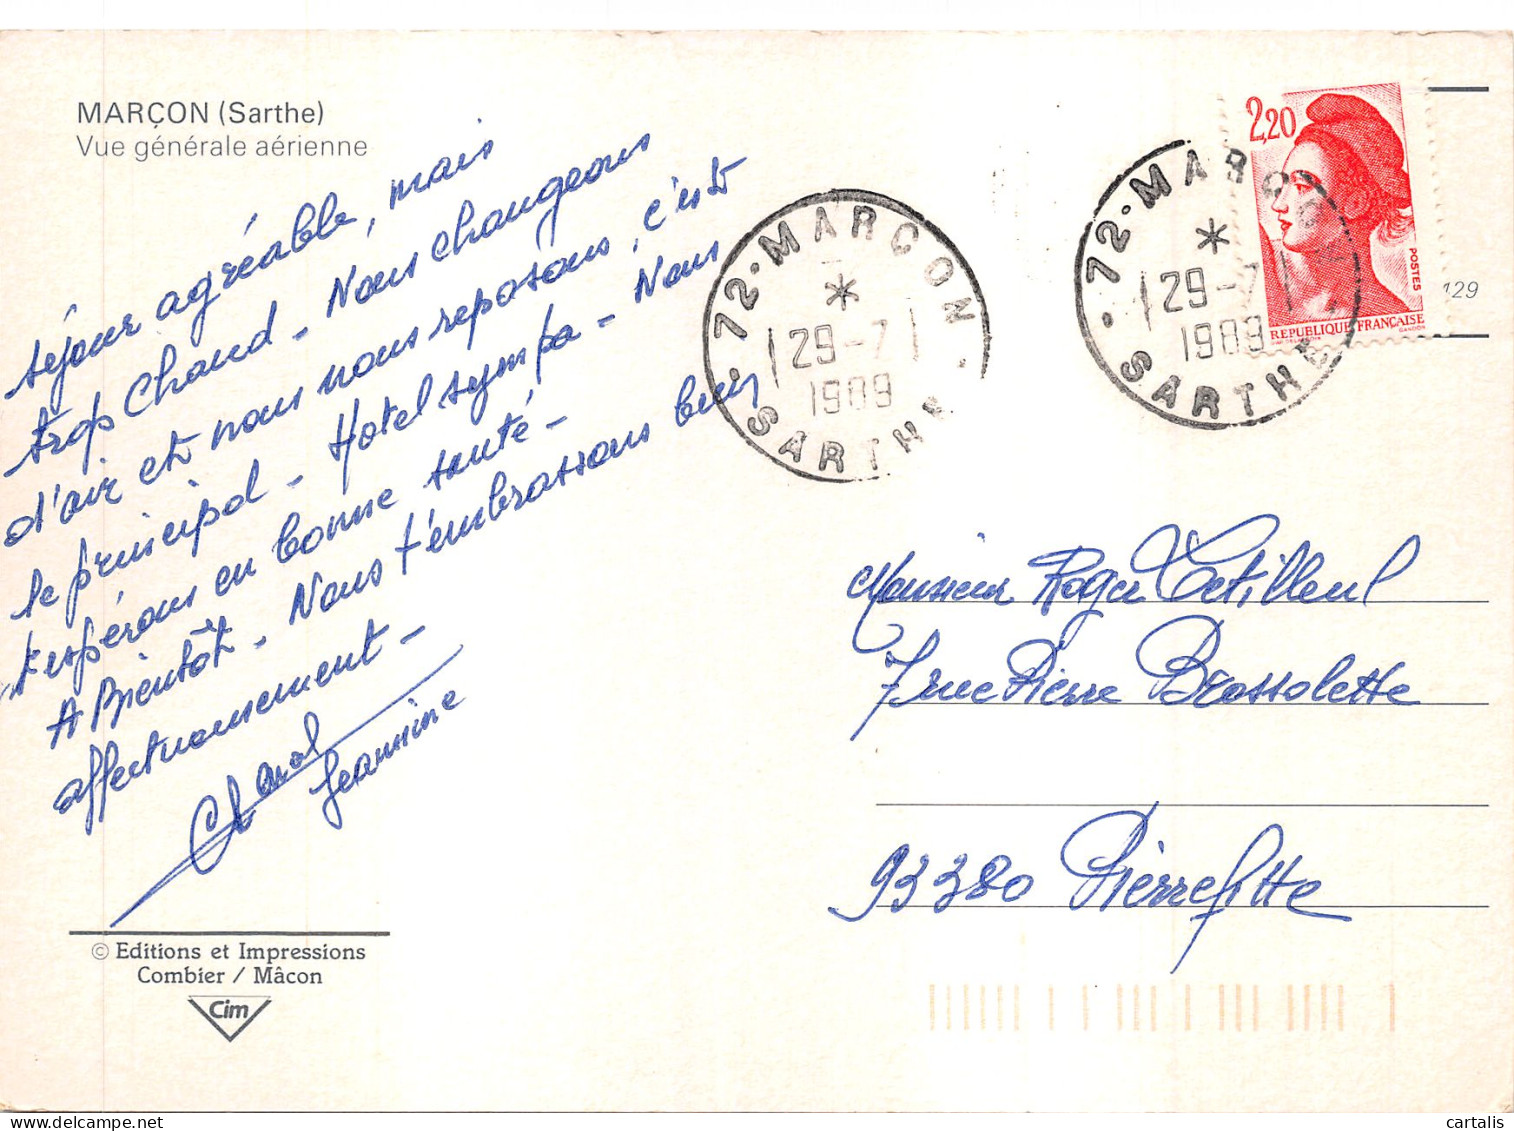 MARÇON (Sarthe)
Vue générale aérienne
séjour agréable, mais
trop chaud - Nous changeons
d'air et nous nous reposons, c'est
le principal - Hotel sympa - Nous
t'espérons en bonne santé -
A Bientôt - Nous t'embrassons bien
affectueusement -
Jeannine
© Editions et Impressions
Combier / Mâcon
Cim
72 · MARÇON
*
29-7
1989
SARTHE
72 · MARÇON
*
29-7
1989
SARTHE
2,20
POSTES
REPUBLIQUE FRANÇAISE
GANDON
129
Monsieur Roger
7 rue Pierre Brossolette
93380 Pierrefitte
cartalis